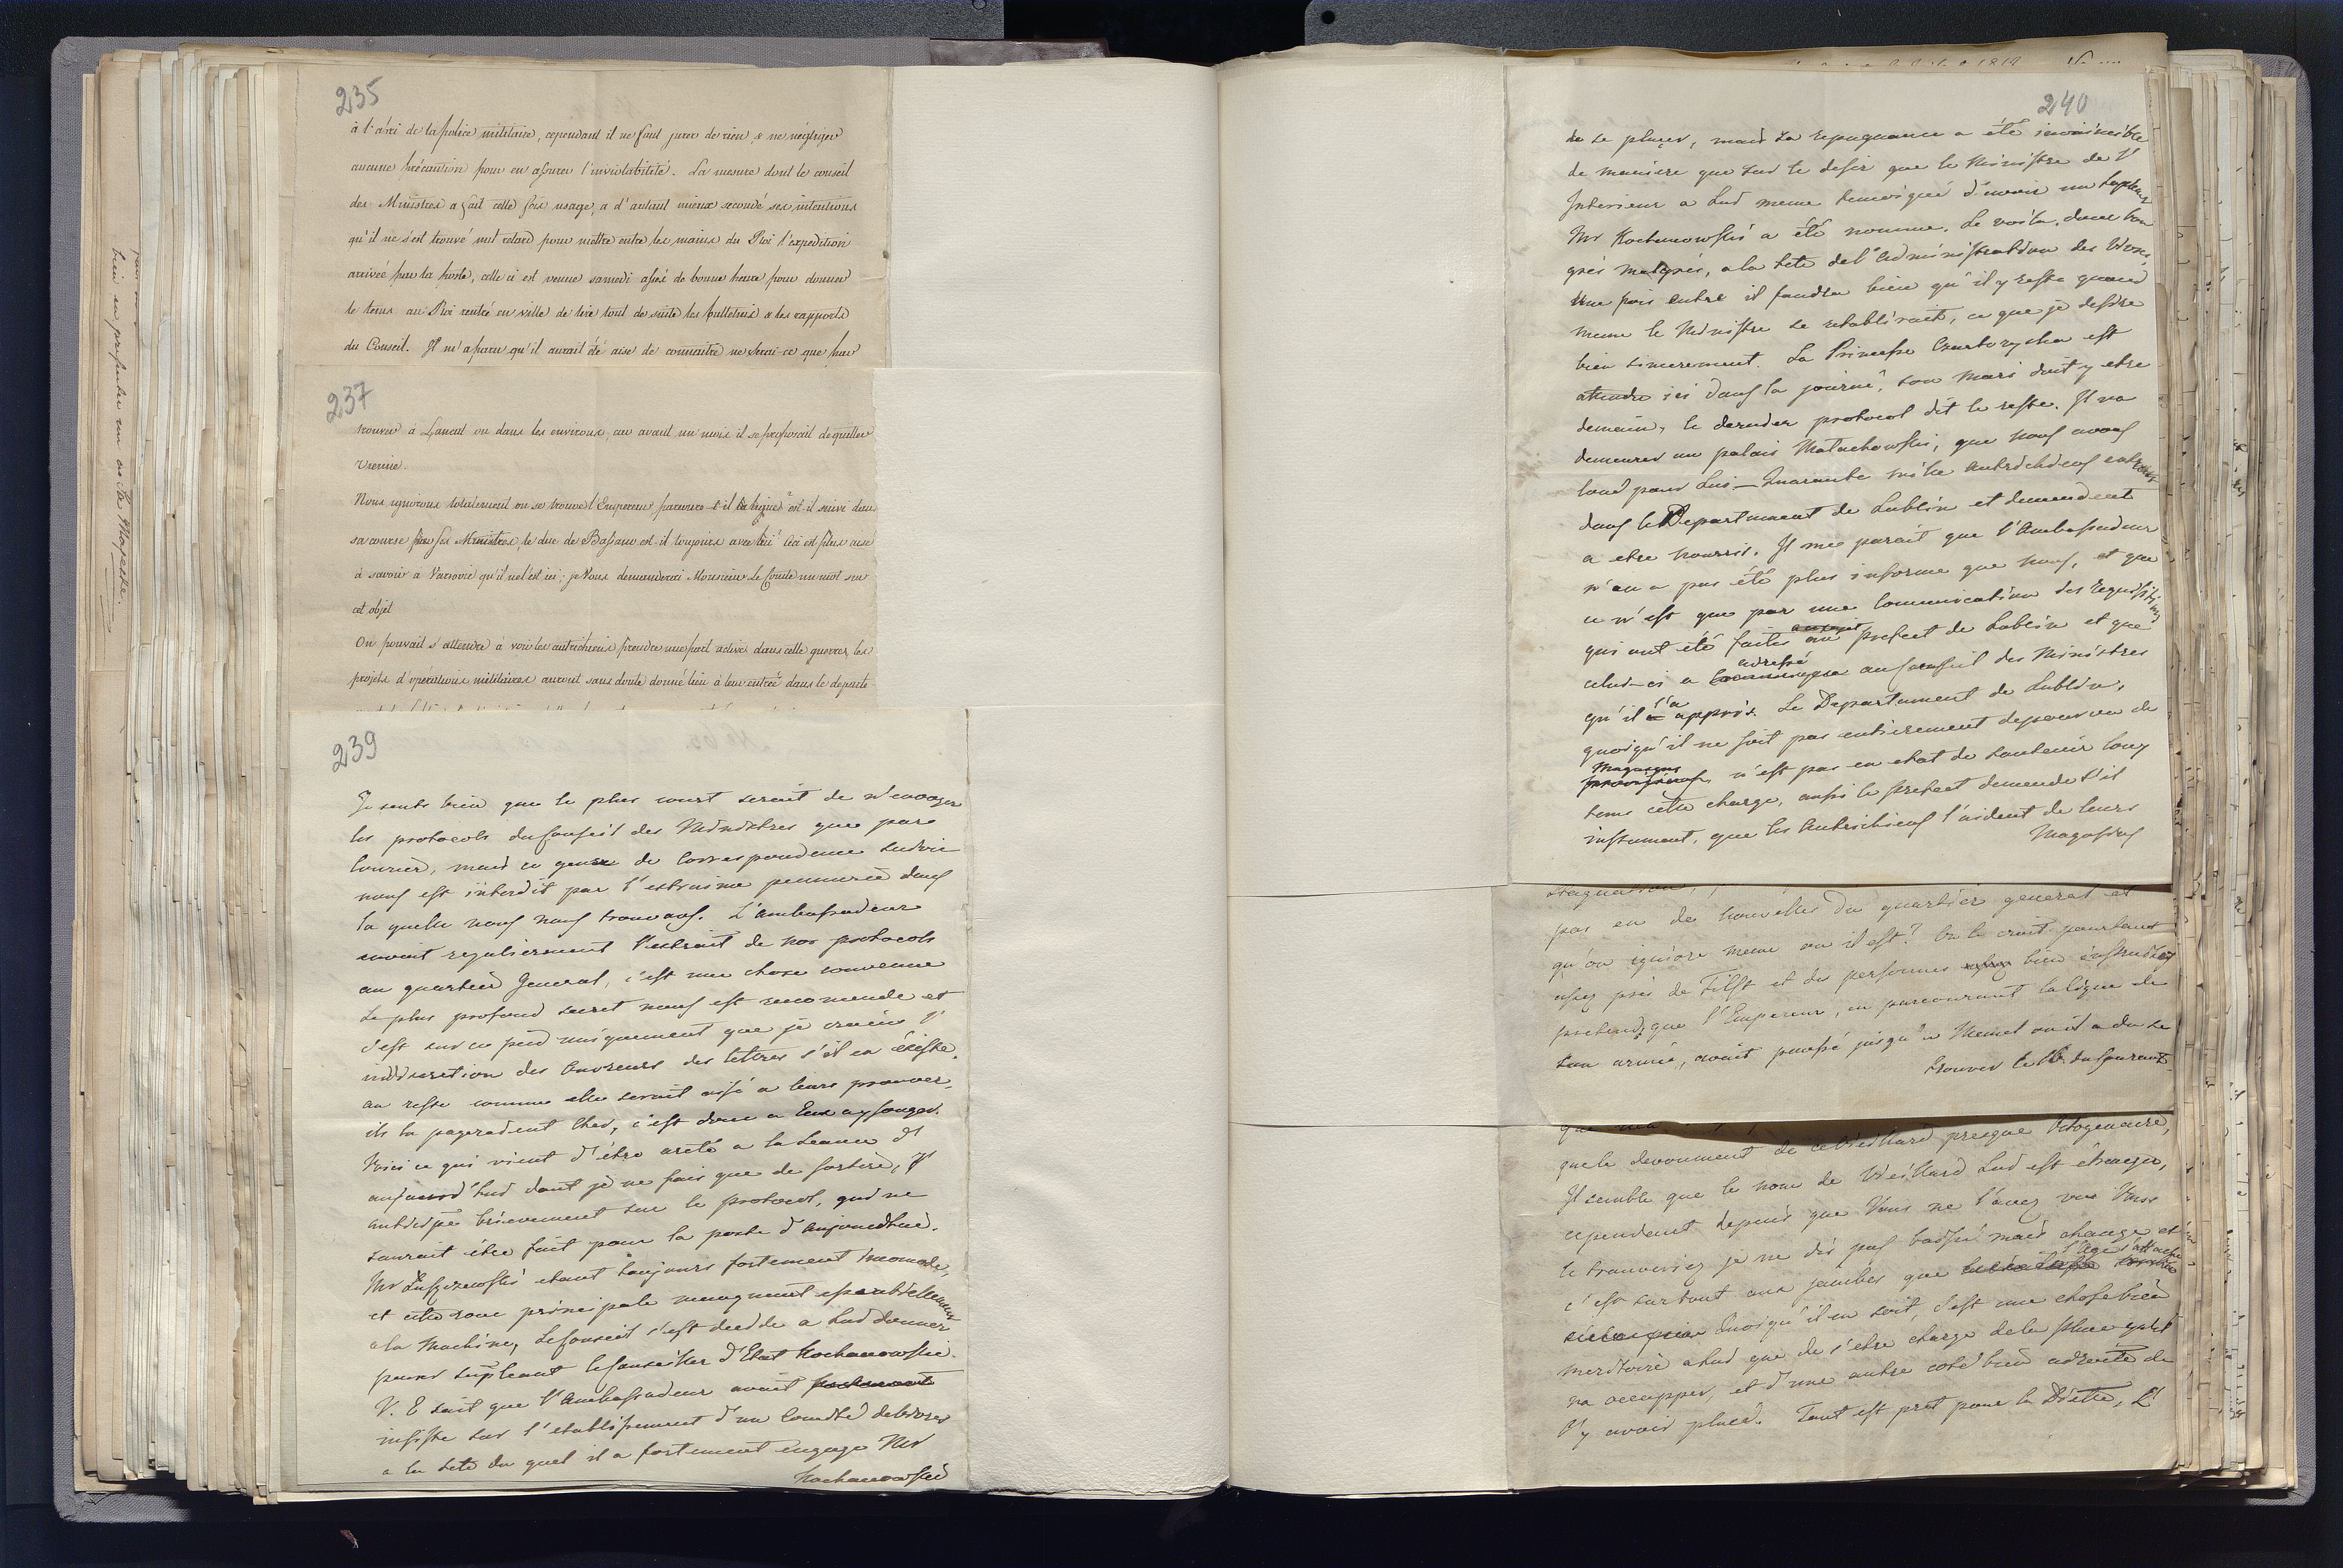 235
à l'abri de la police militaire, cependant il ne faut jurer de rien & ne négliger
aucune précaution pour en assurer l'inviolabilité. La mesure dont le conseil
des Ministres a fait cette fois usage, a d'autant mieux secondé ses intentions
qu'il ne s'est trouvé nul retard pour mettre entre les mains du Roi l'expedition
arrivée par la poste, celle ci est venue samedi assés de bonne heure pour donner
le tems au Roi rentré en ville de lire tout de suite les bulletins & les rapports
du Conseil. Il m'a paru qu'il aurait été aise de connaitre ne serai-ce que par
237
trouver à Lancut ou dans les environs, car avant un mois il se proposait de quitter
Vienne.
Nous ignorons totalement où se trouve l'Empereur parcoure-t-il la ligne? est-il suivi dans
sa course par ses Ministres, le duc de Bassano est-il toujours avec lui? Ceci est plus aisé
à savoir à Varsovie qu'il ne l'est ici; je Vous demanderai Monsieur Le Comte un mot sur
cet objet
On pouvait s'attendre à voir les autrichiens prendre une part active dans cette guerre, les
projets d'opérations militaires auront sans doute donné lieu à leur entrée dans le departe-
239
Je sents bien que le plus court seroit de n'envoyer
les protocols du Conseil des Ministres que par
Courier, mais ce genre de Correspondence suivie
nous est interdit par l'extraime pennurie dans
la quelle nous nous trouvons. L'ambassadeur
envoit regulierement l'extrait de nos protocols
au quartier General, c'est une chose convenue
Le plus profond secret nous est recomende et
c'est sur ce pied uniquement que je crains l'
indiscretion des Ouvreurs des lettres s'il en éxiste.
au reste comme elle seroit aisé a leurs prouver,
ils la payeroient Cher, c'est donc a Eux a y songer.
Voici ce qui vient d'être areté a la Seance d'
aujourd'hui dont je ne fais que de sortire, j'
anticipe brievement sur le protocol, qui ne
sauroit être fait pour la poste d'aujourdhui.
Mr Łuszczewski etant toujours fortement incomode,
et cette roue principale manquant essentiellement
a la Machine, Le Conseil s'est decide a lui donner
pour supleant le Conseiller d'Etat Kochanowski.
V. E sait que l'Ambassadeur avoit fortement
insiste sur l'etablissement d'un Comité de Vivres
a la tete du quel il a fortement engage Mr
Kochanowski
240
de se placer, mais sa repugnance a été invincible
de maniere que sur le desir que le Ministre de l'
Interieur a lui meme temoigné d'avoir un supleant
Mr Kochanowski a été nomme. Le voila donc bon
gres malgrés, a la tete de l'administration des Vivres,
Une fois entré il faudra bien qu'il y reste quand
meme le Ministre se retablirait, ce que je desire
bien sincerement. La Princesse Czartoryska est
attendue ici dans la journé, son mari doit y etre
demain, le dernier protocol dit le reste. Il va
demeurer au palais Małachowski, que nous avons
loué pour Lui — Quarante mille Autrichiens entrent
dans le Departement de Lublin et demandent
a etre nourris. Il me parait que l'Ambassadeur
n'en a pas été plus informe que nous, et que
ce n'est que par une Communication des requisitions
qui ont été faites au prefect de Lublin et que
adressé
celui-ci a au Conseil des Ministres
l'a
qu'il a appris. Le Departement de Lublin,
quoiqu'il ne soit pas entierement depourvu de
Magasins
provisions, n'est pas en etat de soutenir long
tems cette charge, aussi le prefect demende t'il
instament, que les Autrichiens l'aident de leurs
Magasins
stagnation,
pas eu de nouvelles du quartier general et
qu'on ignore meme ou il est? On le croit pourtant
assez près de Tilst et des personnes bien instruites
pretend que l'Empereur, en parcourant la ligne de
son armée, avait poussé jusqu'à Memel ou il a du se
trouver le 16. du Courant.
que le devoument de ce Vieillard presque Octogenaire,
Il semble que le nom de Vieillard Lui est etranger,
cependant depuis que Vous ne l'avez vu Vous
le trouveriez je ne dis pas baissé mais change et
l'age s'attache
c'est surtout aux jambes que
Quoiqu'il en soit, c'est une chose bien
meritoire a lui que de s'etre charge de la place qu'il
va occupper, et d'une autre coté bien adroite de
l'y avoir placé. Tout est pret pour la Diette, L'
bien en presenter un au Sa Majesté.